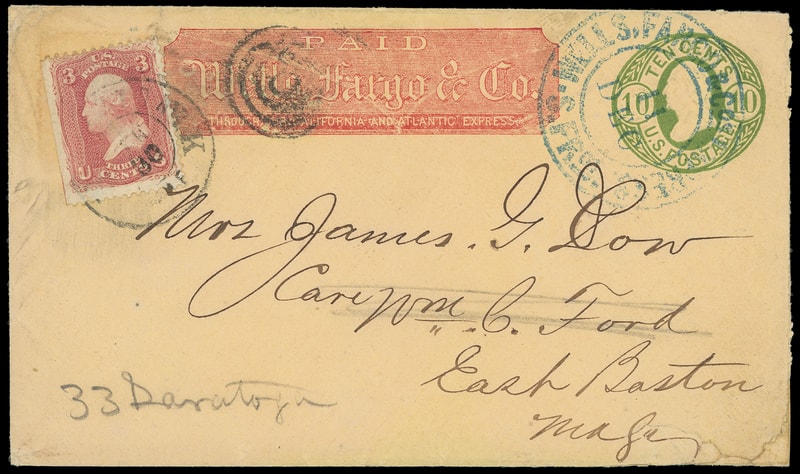 3 U.S. 3
POSTAGE
THREE
CENTS
PAID
Wells Fargo & Co.
THROUGH CALIFORNIA AND ATLANTIC EXPRESS
WELLS, FARGO
TEN CENTS
10 10
U.S. POSTAGE
Mrs James. G. Dow
Care Wm. C. Ford
East Boston
Mass
33 Saratoga